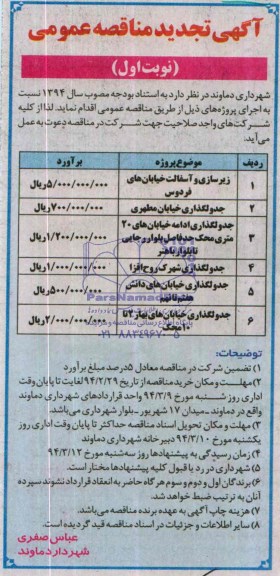 آگهی تجدید مناقصه عمومی
(نوبت اول)
شهرداری دماوند در نظر دارد به استناد بودجه مصوب سال ۱۳۹۴ نسبت
به اجرای پروژه‌های ذیل از طریق مناقصه عمومی اقدام نماید. لذا از کلیه
شرکت‌های واجد صلاحیت جهت شرکت در مناقصه دعوت به عمل
می‌آید.
ردیف موضوع پروژه برآورد
۱ زیرسازی و آسفالت خیابان‌های فردوس ۵/۰۰۰/۰۰۰/۰۰۰ریال
۲ جدولگذاری خیابان مطهری ۷۰۰/۰۰۰/۰۰۰ریال
۳ جدولگذاری ادامه خیابان‌های ۲۰
متری محک حدفاصل بلوار رجایی ۱/۲۰۰/۰۰۰/۰۰۰ریال
تا بلوار باهنر
۴ جدولگذاری شهرک روح افزا ۱/۰۰۰/۰۰۰/۰۰۰ریال
۵ جدولگذاری خیابان‌های دانش ۵۰۰/۰۰۰/۰۰۰ریال
هفتم تا نهم
۶ جدولگذاری خیابان‌های بهار ۲ تا ۱۰ محک ۲/۰۰۰/۰۰۰/۰۰۰ریال
ParaNamad
پایگاه اطلاع رسانی مناقصه و مزایده
۰۲۱-۸۸۳۴۹۶۷۰
توضیحات:
۱) تضمین شرکت در مناقصه معادل ۵درصد مبلغ برآورد
۲)مهلت و مکان خرید مناقصه از تاریخ ۹۴/۲/۲۹ لغایت تا پایان وقت
اداری روز شنبه مورخ ۹۴/۳/۹ واحد قراردادهای شهرداری دماوند
واقع در دماوند ـ میدان ۱۷ شهریور ـ بلوار شهرداری می‌باشد.
۳) مهلت و مکان تحویل اسناد مناقصه حداکثر تا پایان وقت اداری روز
یکشنبه مورخ ۹۴/۳/۱۰ دبیرخانه شهرداری دماوند
۴) زمان رسیدگی به پیشنهادها روز سه‌شنبه مورخ ۹۴/۳/۱۲
۵) شهرداری در رد یا قبول کلیه پیشنهادها مختار است.
۶) برندگان اول و دوم و سوم هرگاه حاضر به انعقاد قرارداد نشوند سپرده
آنان به ترتیب ضبط خواهد شد.
۷) هزینه چاپ آگهی به عهده برنده مناقصه می‌باشد.
۸) سایر اطلاعات و جزئیات در اسناد مناقصه قید گردیده است.
عباس صفری
شهردار دماوند